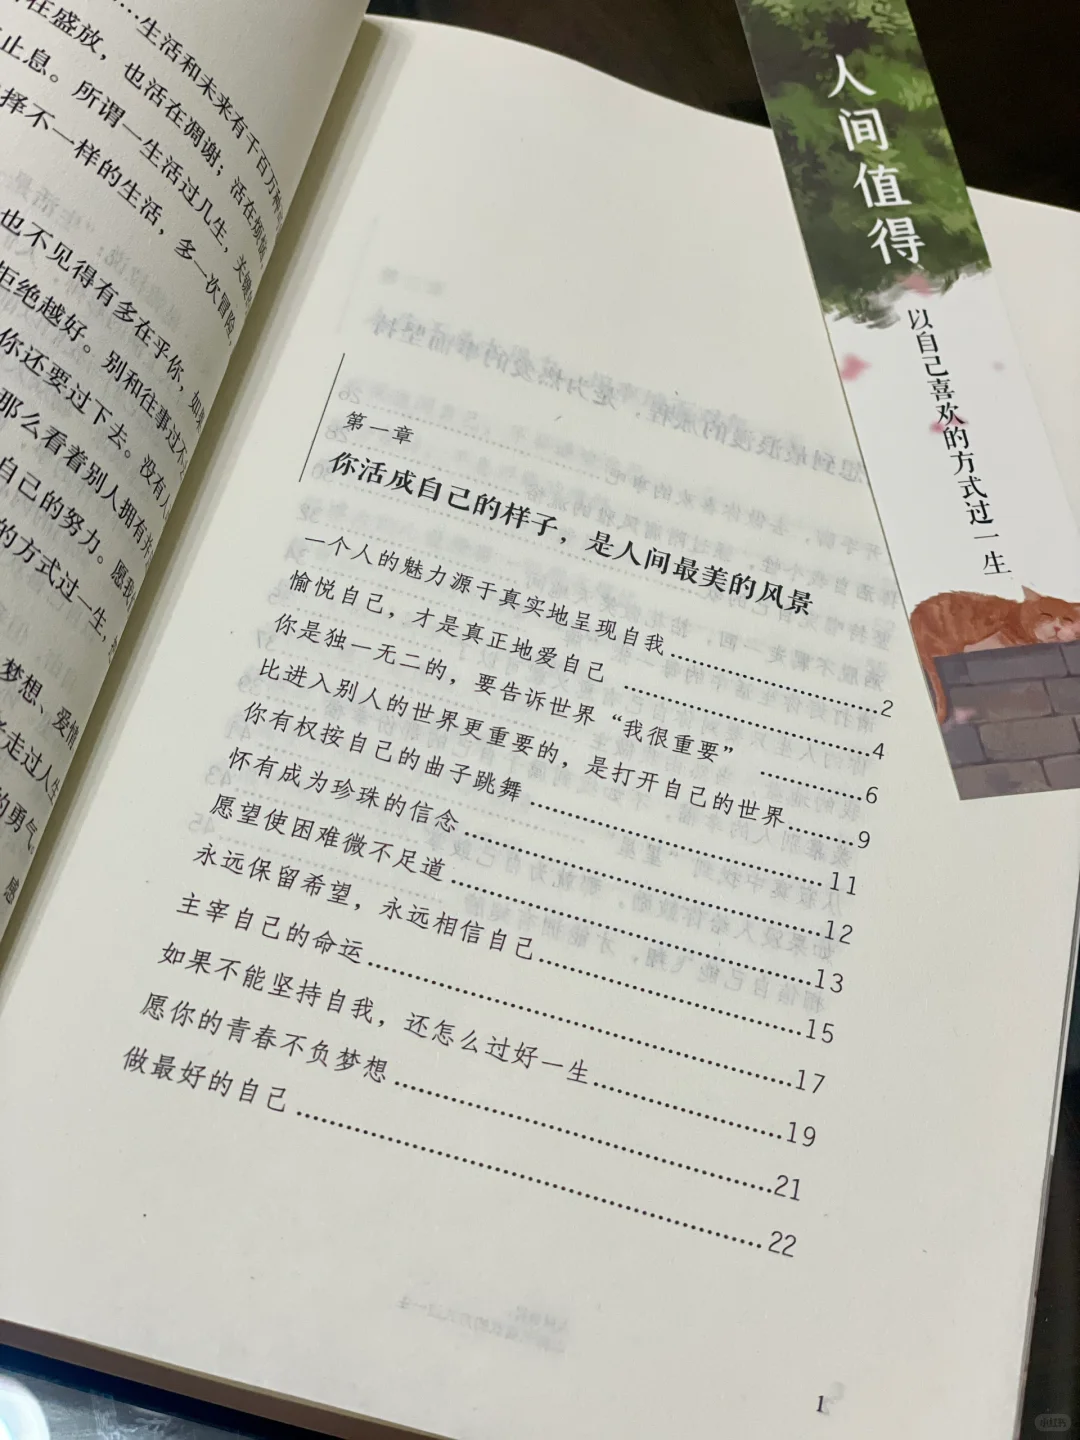 ……生活和未来有千百万种
在盛放，也活在凋谢；活在烦恼
止息。所谓一生活过几生，关键
择不一样的生活，多一次冒险，
也不见得有多在乎你，如果
拒绝越好。别和往事过不
你还要过下去。没有人
那么看着别人拥有
自己的努力。愿我
的方式过一生，
梦想、爱情
走过人生
的勇气。
感
第一章
你活成自己的样子，是人间最美的风景
一个人的魅力源于真实地呈现自我……2
愉悦自己，才是真正地爱自己……4
你是独一无二的，要告诉世界“我很重要”……6
比进入别人的世界更重要的，是打开自己的世界……9
你有权按自己的曲子跳舞……11
怀有成为珍珠的信念……12
愿望使困难微不足道……13
永远保留希望，永远相信自己……15
主宰自己的命运……17
如果不能坚持自我，还怎么过好一生……19
愿你的青春不负梦想……21
做最好的自己……22
1
人间值得
以自己喜欢的方式过一生
小红书